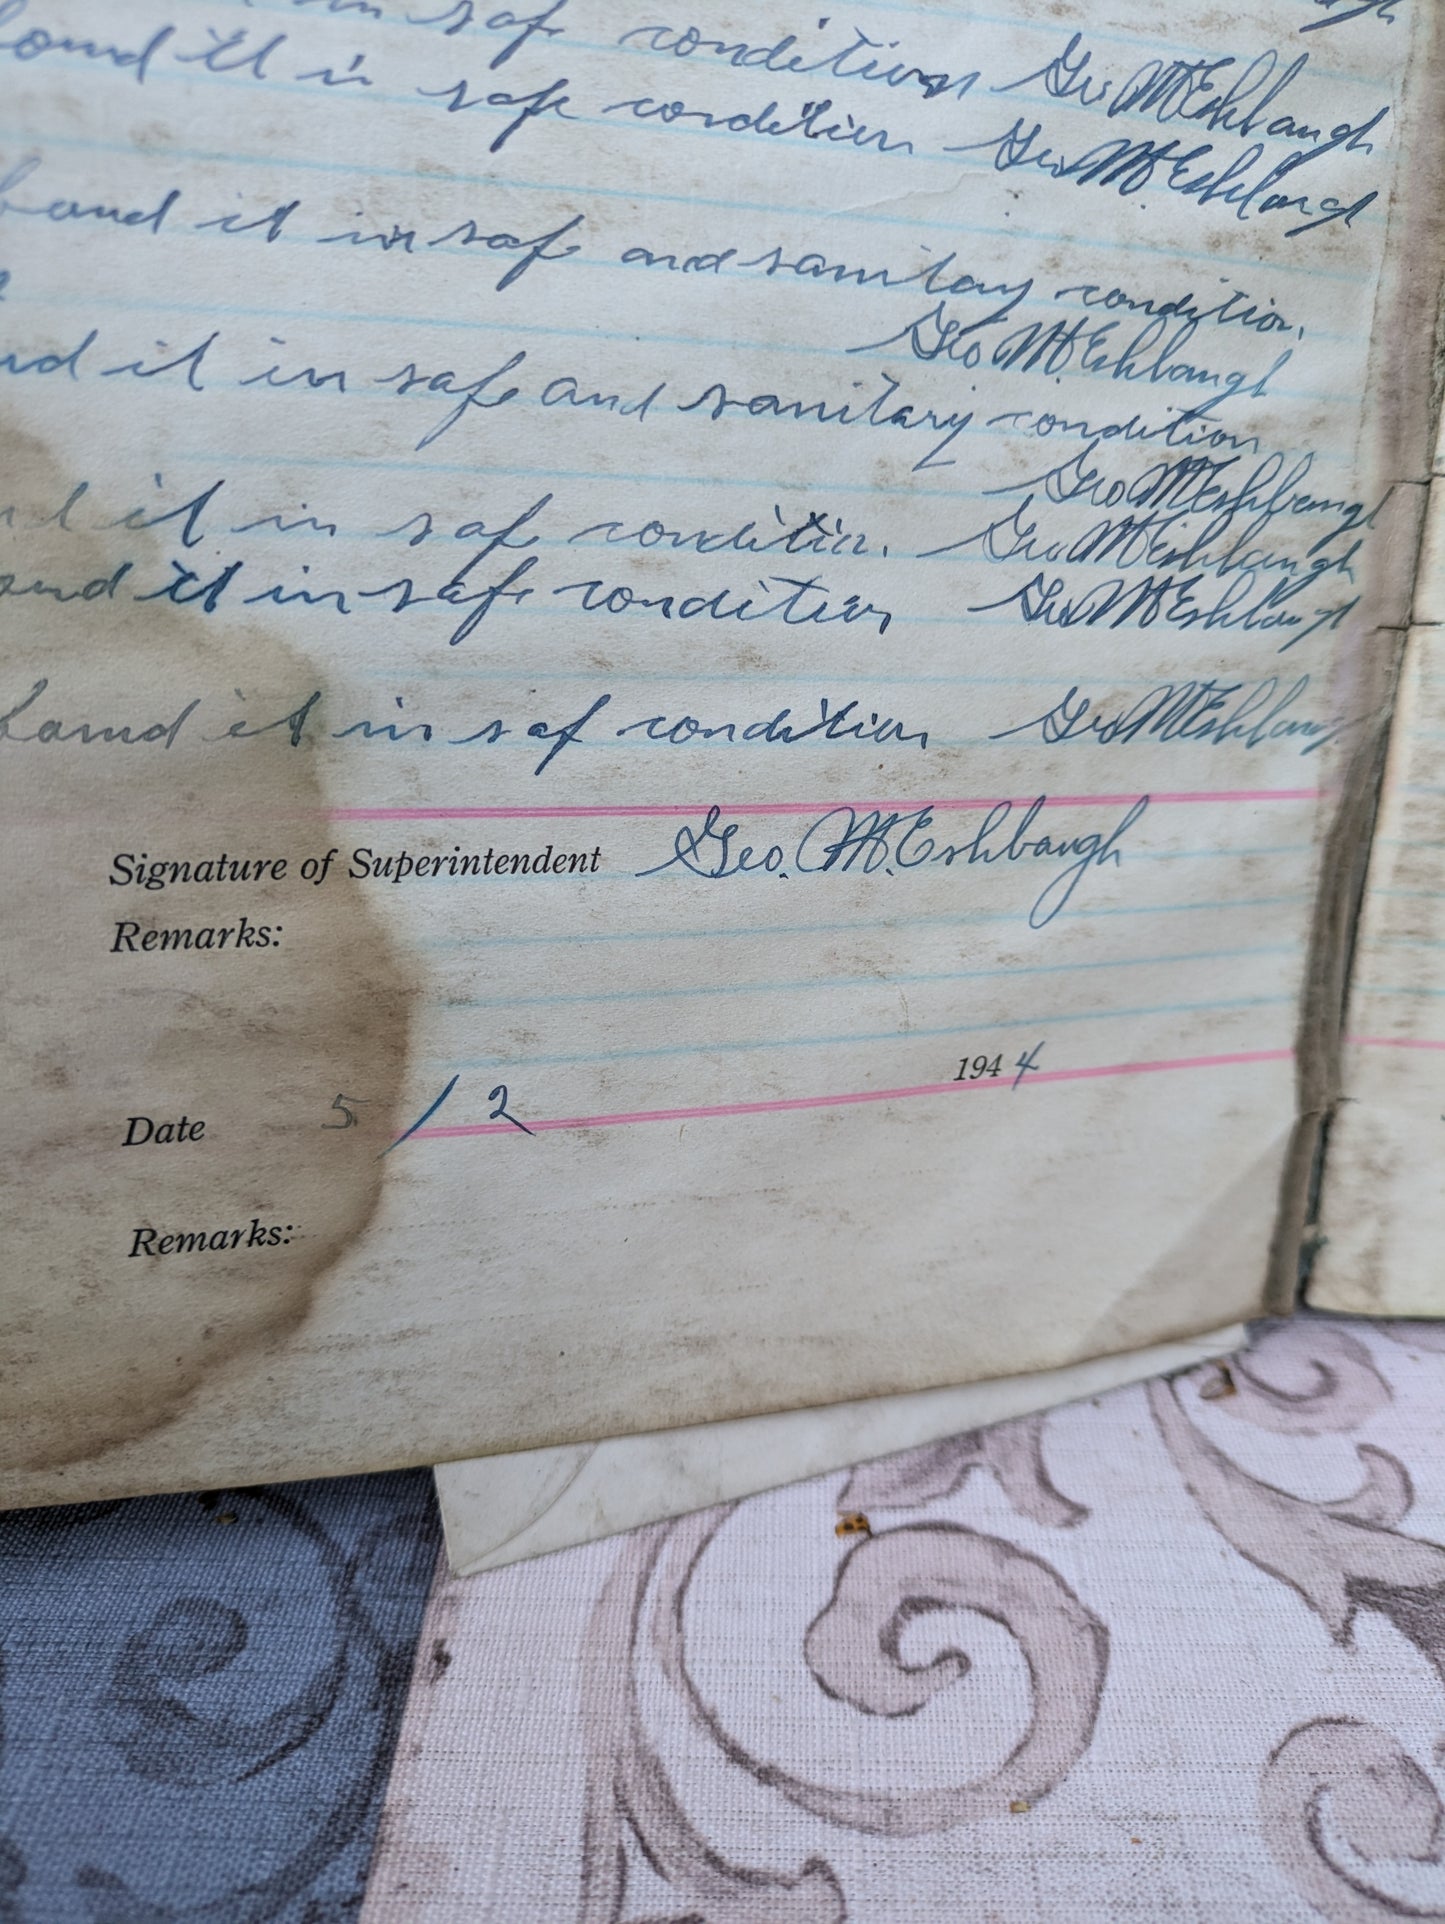 in saf condition Geo M Eshbaugh
found it in safe condition Geo M. Eshbaugh
found it in safe and sanitary condition.
Geo M. Eshbaugh
it in safe and sanitary condition
Geo M Eshbaugh
it in saf condition. Geo M Eshbaugh
it in safe condition Geo M Eshbaugh
found it in saf condition Geo M Eshbaugh
Signature of Superintendent Geo. M. Eshbaugh
Remarks:
1944
Date 5 / 2
Remarks: